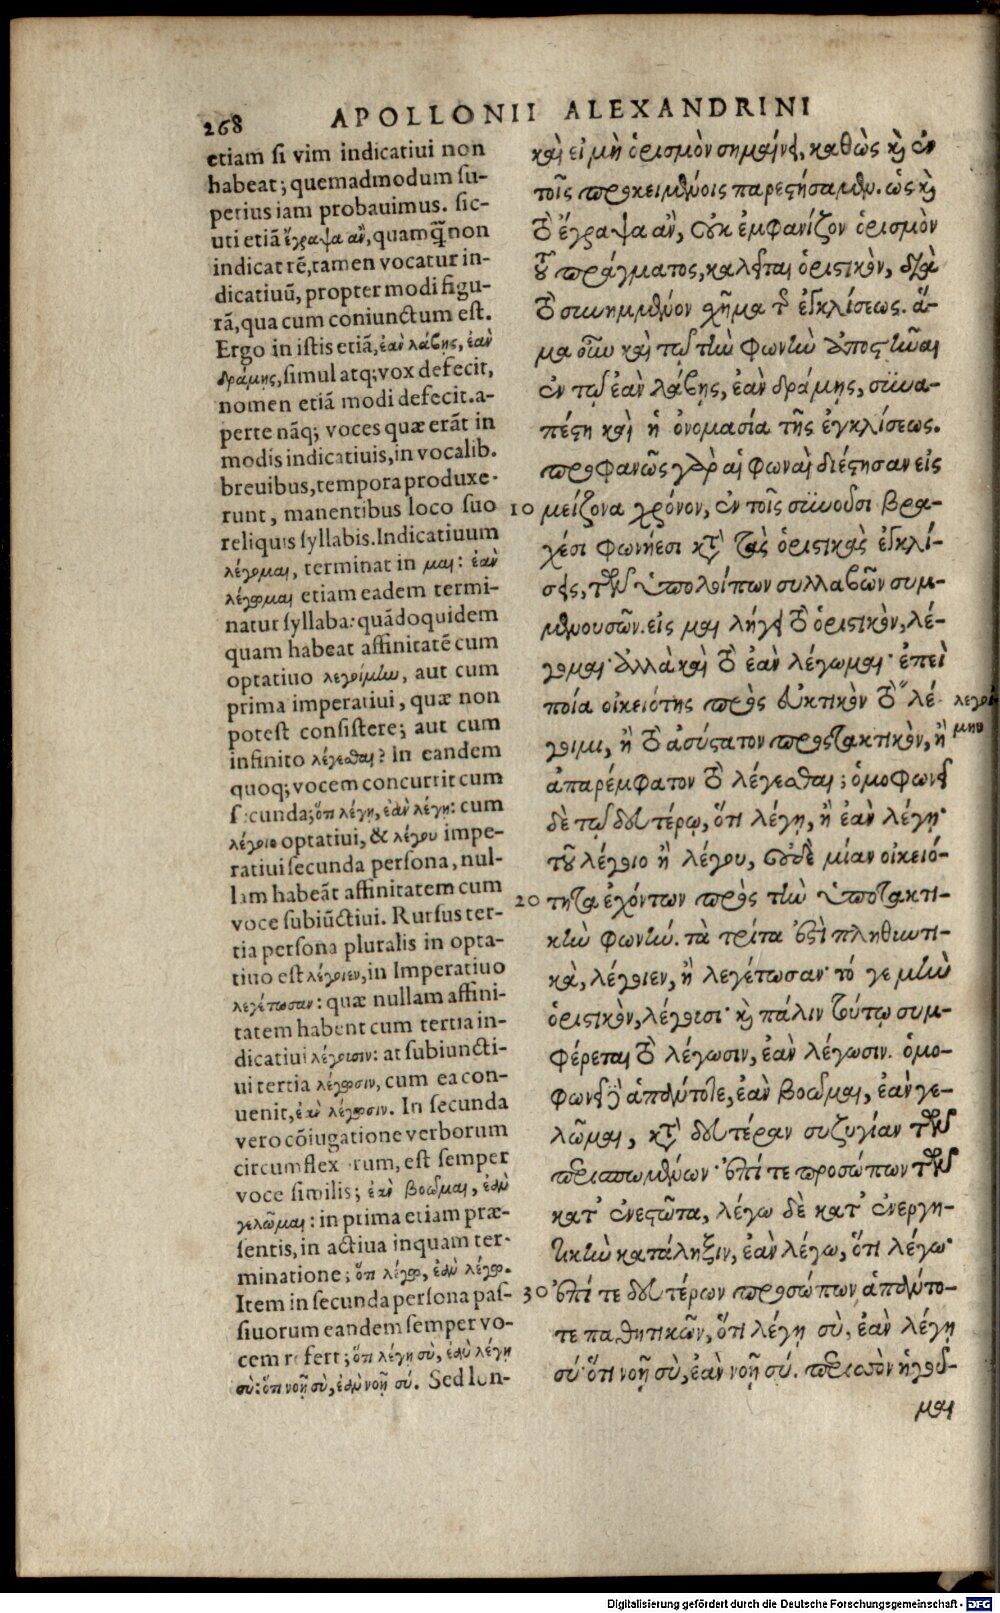 268
APOLLONII ALEXANDRINI
etiam si vim indicatiui non
habeat; quemadmodum su-
perius iam probauimus. sic-
uti etiã ἔγραψα ἂν, quamq̃ non
indicat rẽ, tamen vocatur in-
dicatiuũ, propter modi figu-
rã, qua cum coniunctum est.
Ergo in istis etiã, ἐὰν λάβῃς, ἐὰν
δράμῃς, simul atq; vox defecit,
nomen etiã modi defecit. a-
perte nãq; voces quæ erãt in
modis indicatiuis, in vocalib.
breuibus, tempora produxe-
runt, manentibus loco suo
reliquis syllabis. Indicatiuum
λέγομαι, terminat in μαι: ἐὰν
λέγωμαι etiam eadem termi-
natur syllaba: quãdoquidem
quam habeat affinitatẽ cum
optatiuo λεγοίμην, aut cum
prima imperatiui, quæ non
potest consistere; aut cum
infinito λέγεσθαι? In eandem
quoq; vocem concurrit cum
secunda; ὅτι λέγῃ, ἐὰν λέγῃ: cum
λέγοιο optatiui, & λέγου impe-
ratiui secunda persona, nul-
lam habeãt affinitatem cum
voce subiũctiui. Rursus ter-
tia persona pluralis in opta-
tiuo est λέγοιεν, in Imperatiuo
λεγέτωσαν: quæ nullam affini-
tatem habent cum tertia in-
dicatiui λέγουσιν: at subiuncti-
ui tertia λέγωσιν, cum ea con-
uenit, ἐὰν λέγωσιν. In secunda
vero cõiugatione verborum
circumflexorum, est semper
voce similis; ἐὰν βοῶμαι, ἐὰν
γελῶμαι: in prima etiam præ-
sentis, in actiua inquam ter-
minatione; ὅτι λέγω, ἐὰν λέγω.
Item in secunda persona pas-
siuorum eandem semper vo-
cem refert; ὅτι λέγῃ σὺ, ἐὰν λέγῃ
σὺ: ὅτι νοῇ σὺ, ἐὰν νοῇ σύ. Sed lon-
καὶ εἰ μὴ ὁρισμὸν σημαίνει, καθὼς καὶ ἐν
τοῖς προκειμένοις παρεστήσαμεν. ὡς καὶ
τὸ ἔγραψα ἂν, οὐκ ἐμφανίζον ὁρισμὸν
τοῦ πράγματος, καλεῖται ὁριστικὸν, διὰ
τὸ συνημμένον σχῆμα τῆς ἐγκλίσεως. ἅ-
μα οὖν καὶ τῷ τὴν φωνὴν ἀποστῆναι
ἐν τῷ ἐὰν λάβῃς, ἐὰν δράμῃς, συνα-
πέστη καὶ ἡ ὀνομασία τῆς ἐγκλίσεως.
προφανῶς γὰρ αἱ φωναὶ διέστησαν εἰς
10 μείζονα χρόνον, ἐν τοῖς συνοῦσι βρα-
χέσι φωνήεσι κατὰ τὰς ὁριστικὰς ἐγκλί-
σεις, τῶν ὑπολοίπων συλλαβῶν συμ-
μενουσῶν. εἰς μαι λήγει τὸ ὁριστικὸν, λέ-
γομαι· ἀλλὰ καὶ τὸ ἐὰν λέγωμαι· ἐπεὶ
ποία οἰκειότης πρὸς εὐκτικὸν τὸ λέ- λεγοί
γοιμι, ἢ τὸ ἀσύστατον προστακτικὸν, ἢ μην
ἀπαρέμφατον τὸ λέγεσθαι; ὁμοφωνεῖ
δὲ τῷ δευτέρῳ, ὅτι λέγῃ, ἢ ἐὰν λέγῃ·
τοῦ λέγοιο ἢ λέγου, οὐδὲ μίαν οἰκειό-
20 τητα ἐχόντων πρὸς τὴν ὑποτακτι-
κὴν φωνήν. τὰ τρίτα ἐστὶ πληθυντι-
κὰ, λέγοιεν, ἢ λεγέτωσαν· τό γε μὴν
ὁριστικὸν, λέγουσι· καὶ πάλιν τούτῳ συμ-
φέρεται τὸ λέγωσιν, ἐὰν λέγωσιν. ὁμο-
φωνεῖ γὰρ ἁπάντοτε, ἐὰν βοῶμαι, ἐὰν γε-
λῶμαι, κατὰ δευτέραν συζυγίαν τῶν
περισπωμένων· ἐπί τε προσώπων τῶν
κατ' ἐνεστῶτα, λέγω δὲ κατ' ἐνεργη-
τικὴν κατάληξιν, ἐὰν λέγω, ὅτι λέγω·
30 ἐπί τε δευτέρων προσώπων ἁπάντο-
τε παθητικῶν, ὅτι λέγῃ σὺ, ἐὰν λέγῃ
σύ· ὅτι νοῇ σὺ, ἐὰν νοῇ σύ. περισσὸν ἡγοῦ-
μαι
Digitalisierung gefördert durch die Deutsche Forschungsgemeinschaft - DFG